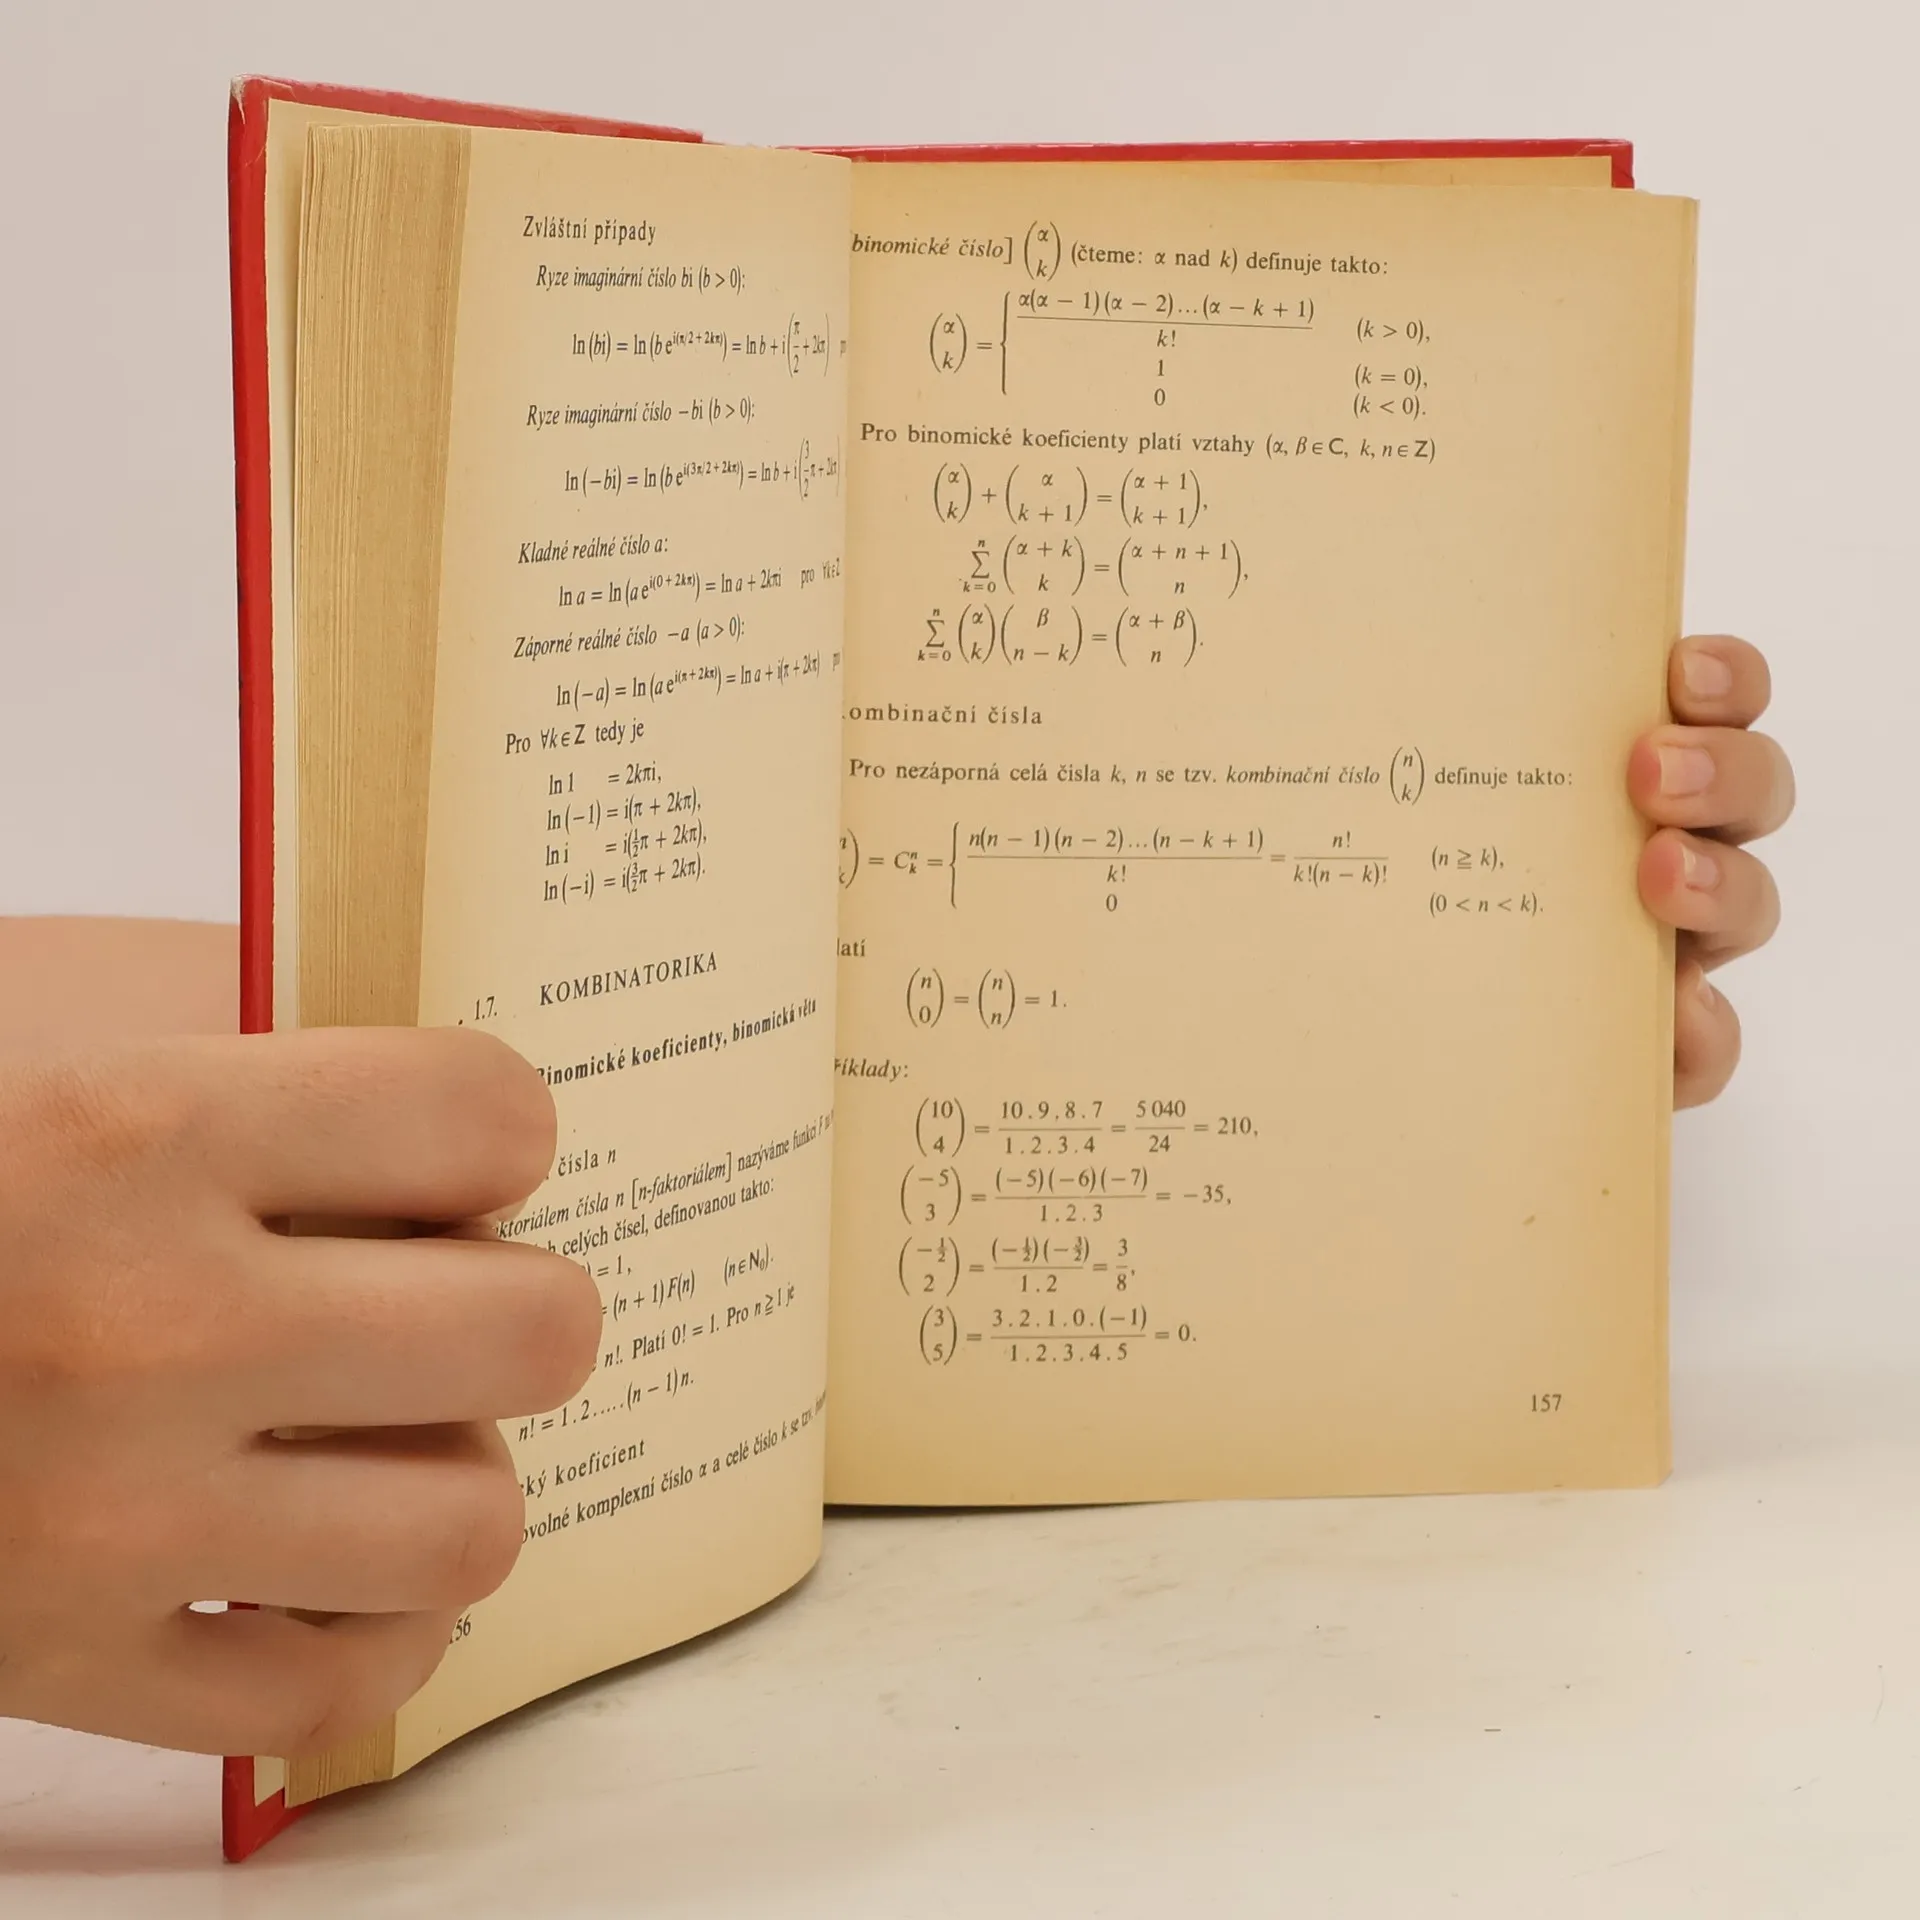 Zvláštní případy
Ryze imaginární číslo bi (b > 0):
ln (bi) = ln (b e^{i(π/2 + 2kπ)}) = ln b + i(π/2 + 2kπ)
Ryze imaginární číslo −bi (b > 0):
ln (−bi) = ln (b e^{i(3π/2 + 2kπ)}) = ln b + i(3/2 π + 2kπ)
Kladné reálné číslo a:
ln a = ln (a e^{i(0 + 2kπ)}) = ln a + 2kπi pro ∀k∈Z
Záporné reálné číslo −a (a > 0):
ln (−a) = ln (a e^{i(π + 2kπ)}) = ln a + i(π + 2kπ)
Pro ∀k∈Z tedy je
ln 1 = 2kπi,
ln (−1) = i(π + 2kπ),
ln i = i(½π + 2kπ),
ln (−i) = i(3/2 π + 2kπ).
1.7. KOMBINATORIKA
Binomické koeficienty, binomická věta
čísla n
čísla n [n-faktoriálem] nazýváme funkci F
celých čísel, definovanou takto:
= 1,
= (n + 1) F(n) (n∈N₀).
n!. Platí 0! = 1. Pro n ≧ 1 je
n! = 1 . 2 . ... . (n − 1) n.
koeficient
komplexní číslo α a celé číslo k se tzv.
156
binomické číslo] (α k) (čteme: α nad k) definuje takto:
(α k) = { α(α − 1)(α − 2)...(α − k + 1) / k! (k > 0),
1 (k = 0),
0 (k < 0).
Pro binomické koeficienty platí vztahy (α, β∈C, k, n∈Z)
(α k) + (α k + 1) = (α + 1 k + 1),
∑_{k=0}^{n} (α + k k) = (α + n + 1 n),
∑_{k=0}^{n} (α k)(β n − k) = (α + β n).
ombinační čísla
Pro nezáporná celá čísla k, n se tzv. kombinační číslo (n k) definuje takto:
(n k) = C_k^n = { n(n − 1)(n − 2)...(n − k + 1) / k! = n! / k!(n − k)! (n ≧ k),
0 (0 < n < k).
latí
(n 0) = (n n) = 1.
říklady:
(10 4) = 10 . 9 . 8 . 7 / 1 . 2 . 3 . 4 = 5 040 / 24 = 210,
(−5 3) = (−5)(−6)(−7) / 1 . 2 . 3 = −35,
(−½ 2) = (−½)(−3/2) / 1 . 2 = 3/8,
(3 5) = 3 . 2 . 1 . 0 . (−1) / 1 . 2 . 3 . 4 . 5 = 0.
157